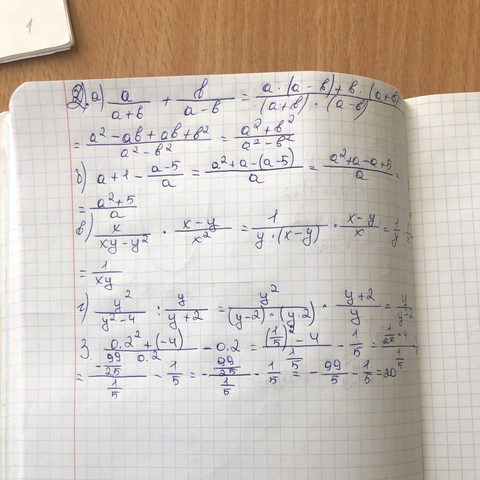 1
2. а) a/(a+b) + b/(a-b) = (a·(a-b)+b·(a+b))/((a+b)·(a-b))
= (a²-ab+ab+b²)/(a²-b²) = (a²+b²)/(a²-b²)
б) a+1 - (a-5)/a = (a²+a-(a-5))/a = (a²+a-a+5)/a =
= (a²+5)/a
в) x/(xy-y²) · (x-y)/x² = 1/(y·(x-y)) · (x-y)/x = 1/y ·
= 1/(xy)
г) y²/(y²-4) : y/(y+2) = y²/((y-2)·(y·2)) · (y+2)/y = y/(y-2)
3. (0.2²+(-4))/0.2 - 0.2 = ((1/5)²-4)/(1/5) - 1/5 = (1/25-4)/(1/5)
= (-99/25)/(1/5) - 1/5 = -(99/25)/(1/5) - 1/5 = -99/5 - 1/5 = 20